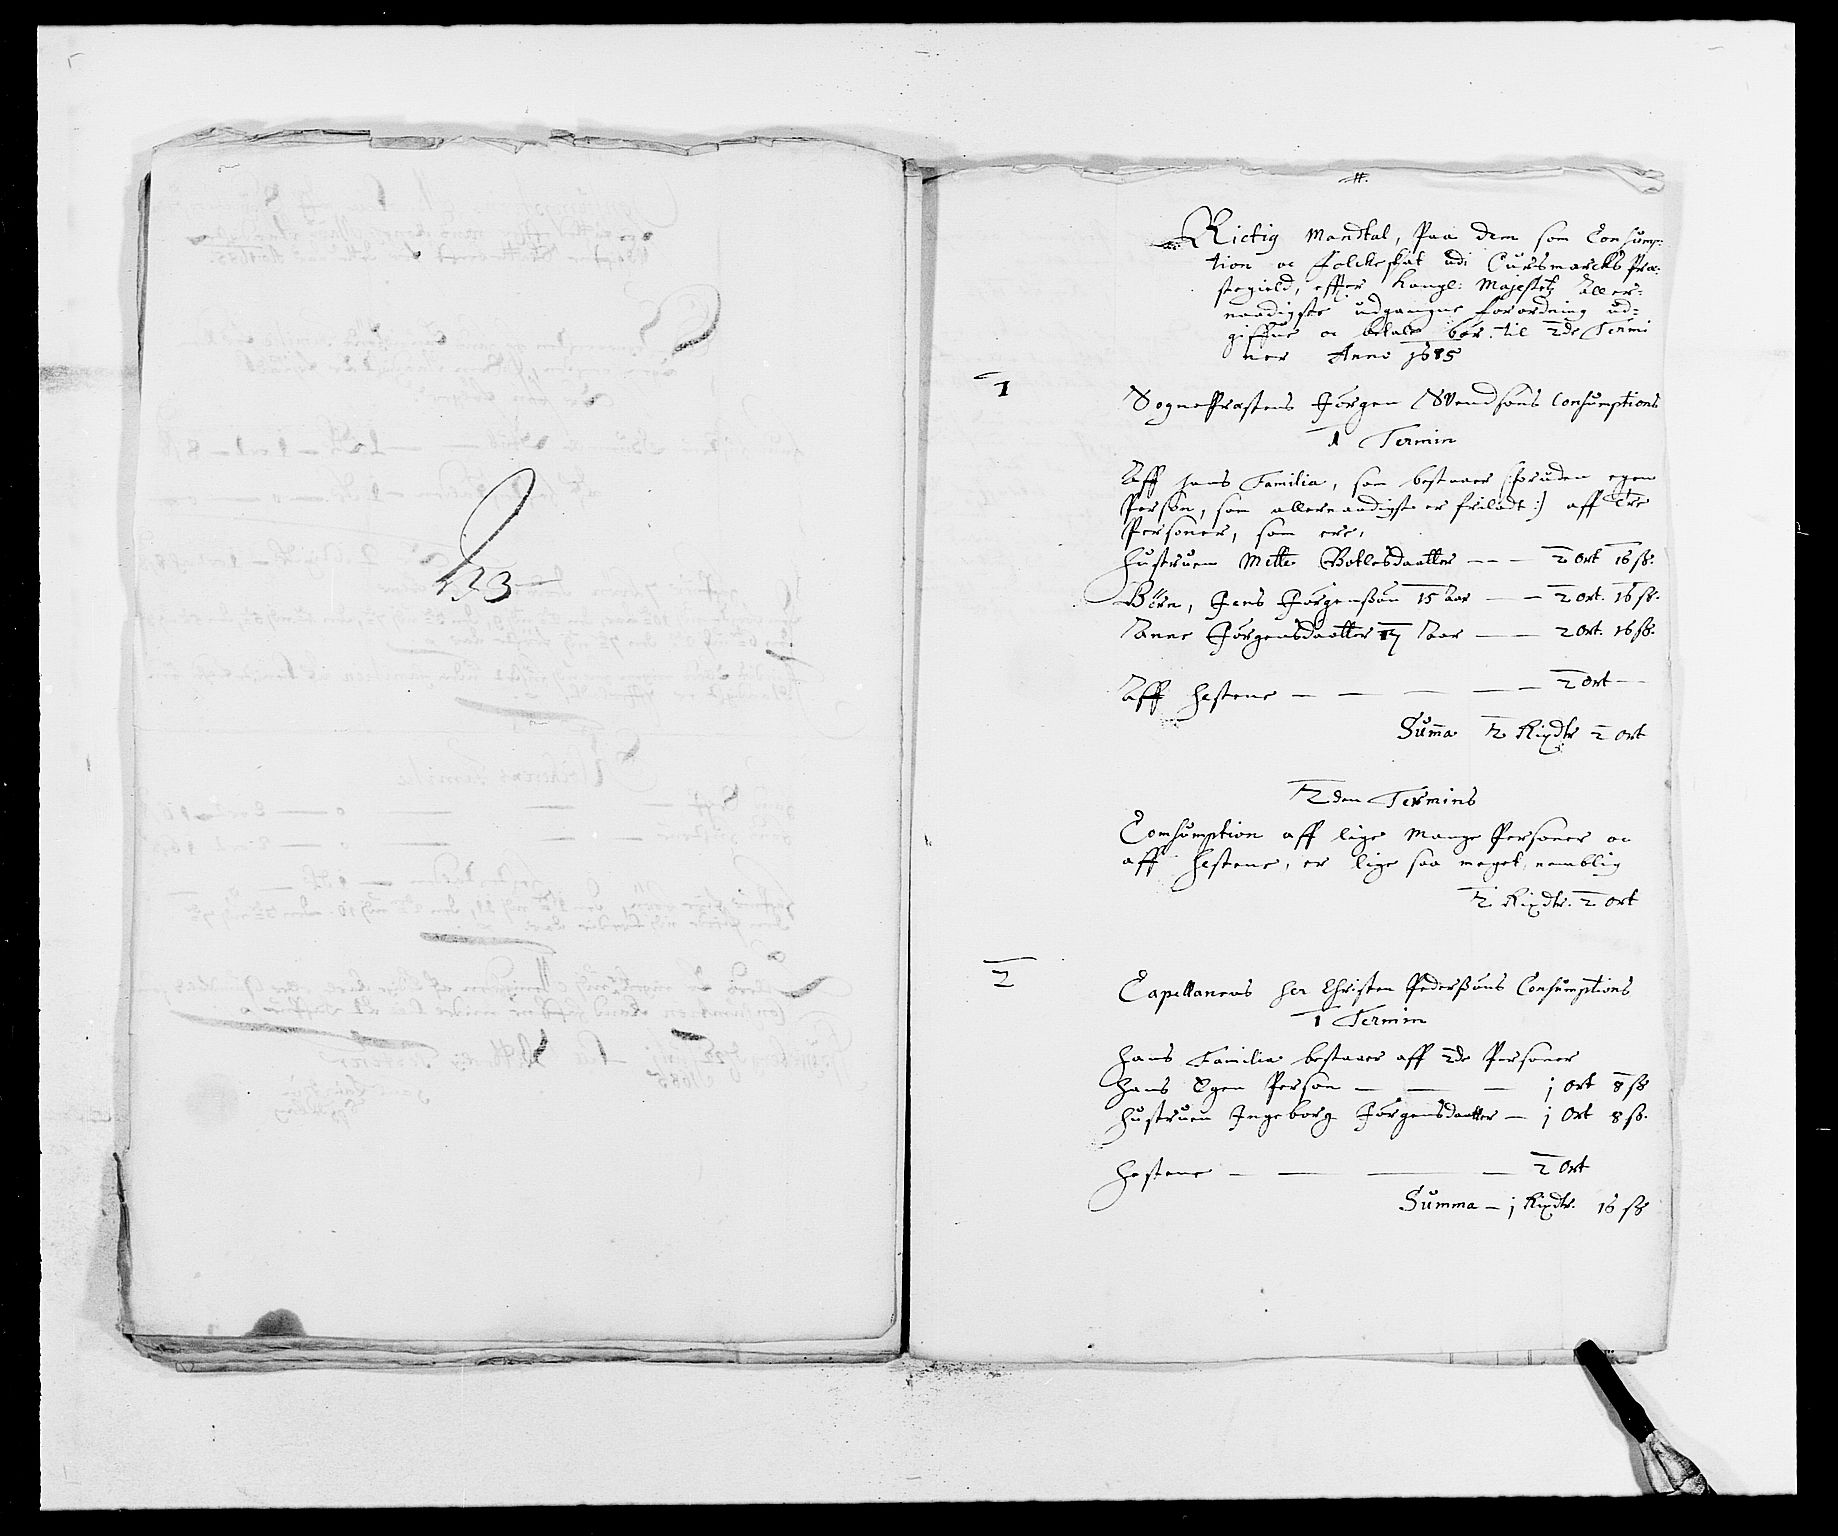 #.
Rictig Mandtal, Paa dem som Consump-
tion oc Folckeskat udi Cursmarcks Præ-
stegield, effter Kongl: Majestetz Aller-
naadigste udgangne forordning ud-
giffue oc betale bør til 2de Termi
ner Anno 1685
1
SognePræstens Jørgen Svendsøns Consumptions
1 Termin
Aff hans Familia, som bestaaer (foruden egen
Person, som allernaadigst er friladt:) aff Tre
Personer, som ere,
Hustruen Mette Botlesdaatter — — — 2 Ort 16 ß.
Børn, Jens Jørgenßøn 15 Aar — — 2 Ort. 16 ß.
Anne Jørgensdaatter 17 Aar — — 2 Ort. 16 ß.
Aff Hestene — — — — — 2 Ort —
Summa 2 Rixdlr 2 Ort
2den Termins
Comsumption aff lige mange Personer oc
aff Hestene, er lige saa meget, nemblig
2 Rixdlr. 2 Ort
2
Capellanens Her Christen Pederßøns Consumptions
1 Termin
Hans Familia bestaaer aff 2de Personer
Hans Egen Person — — — j Ort 8 ß
Hustruen Ingeborg Jørgensdaatter — j Ort 8 ß.
Hestene — — — — 2 Ort
Summa — j Rixdlr. 16 ß